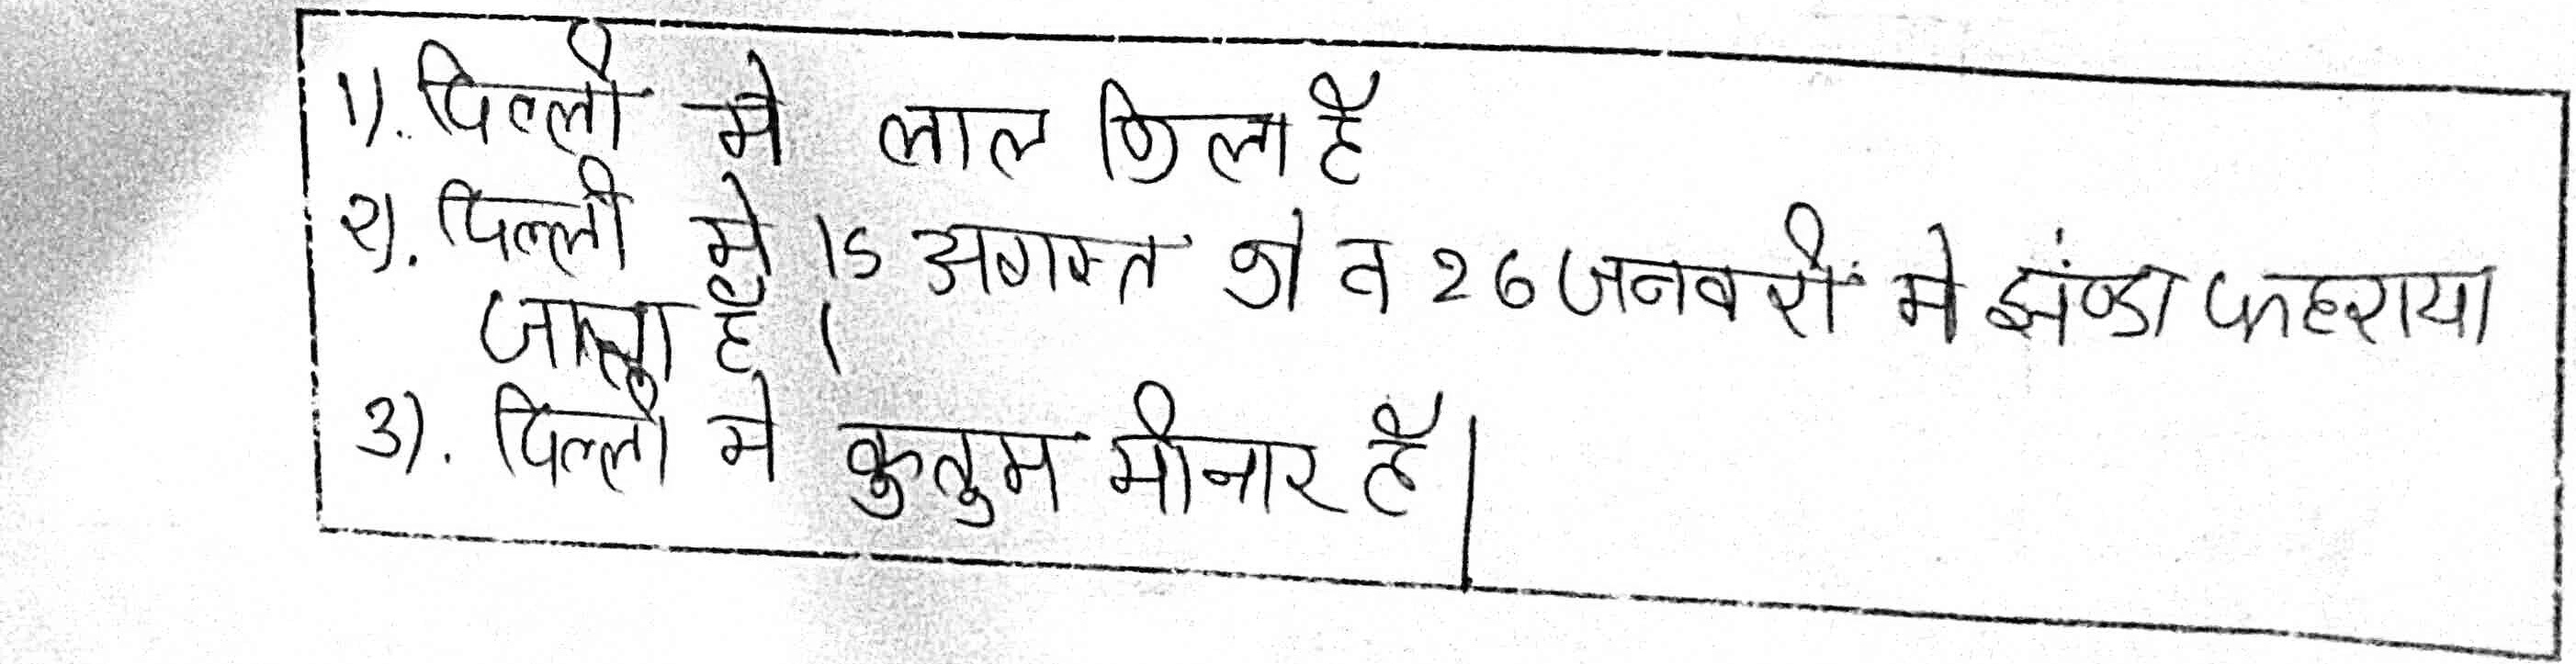 1). दिल्ली मे लाल किला है
2). दिल्ली मे 15 अगस्त को व 26 जनवरी में झंण्डा फहराया
जाता है।
3). दिल्ली मे कुतुम मीनार है।